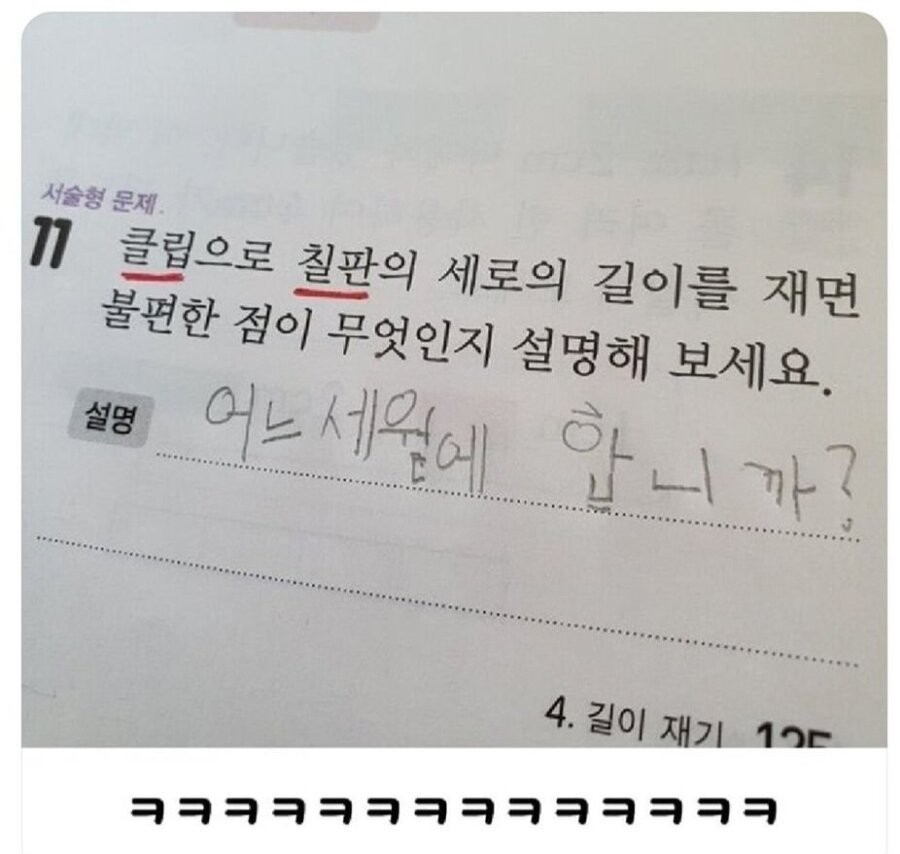 서술형 문제.
11 클립으로 칠판의 세로의 길이를 재면
불편한 점이 무엇인지 설명해 보세요.
설명 어느세월에 합니까?
4. 길이 재기 125
ㅋㅋㅋㅋㅋㅋㅋㅋㅋㅋㅋㅋㅋㅋ